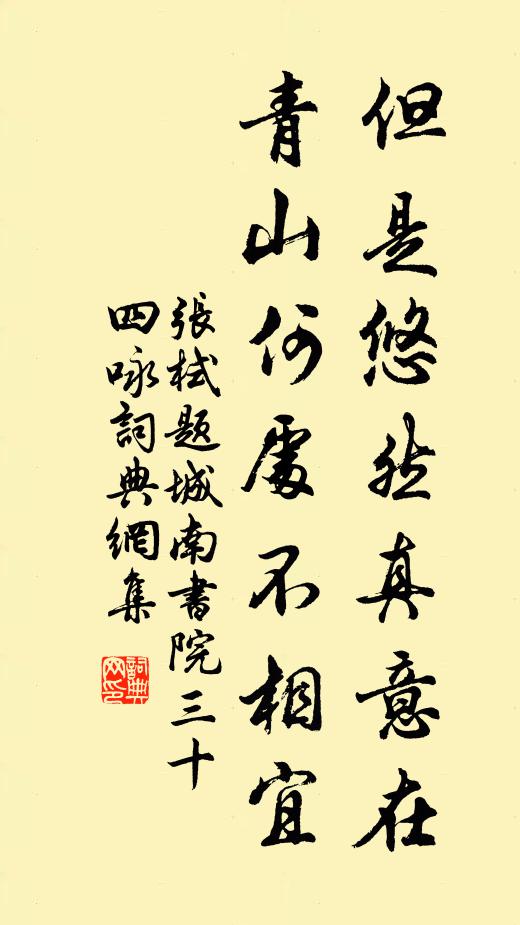 但是悠然真意在
青山何處不相宜
張栻題城南書院三十
四咏詞典網集
詞典
网印